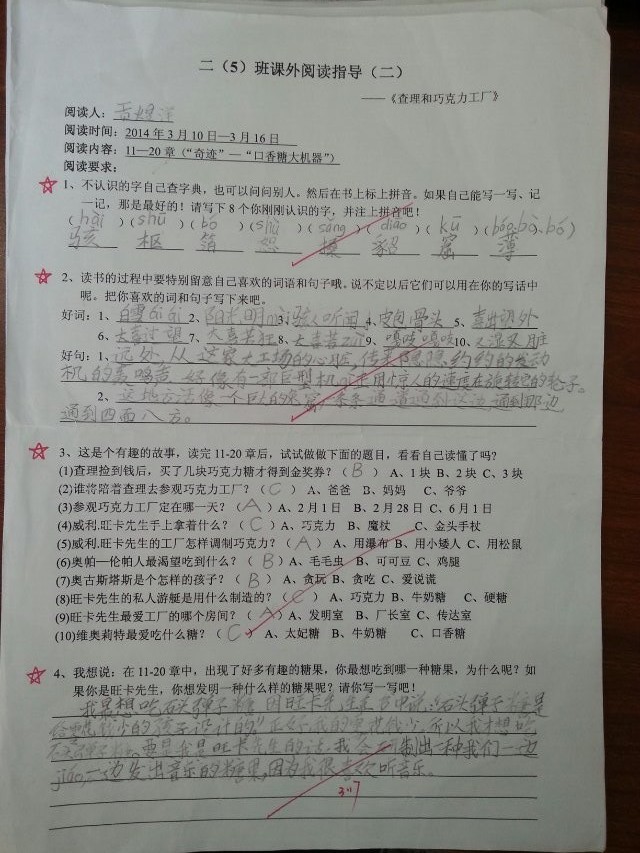 二（5）班课外阅读指导（二）
——《查理和巧克力工厂》
阅读人：
阅读时间：2014年3月10日—3月16日
阅读内容：11—20章（“奇迹”—“口香糖大机器”）
阅读要求：
1、不认识的字自己查字典，也可以问问别人。然后在书上标上拼音。如果自己能写一写、记
一记，那是最好的！请写下8个你刚刚认识的字，并注上拼音吧！
(hài)(shū)(bó)(shù)(sǎng)(diāo)(kū)(báo、bò、bó)
骇 枢 箔 恕 貂 窟 薄
2、读书的过程中要特别留意自己喜欢的词语和句子哦。说不定以后它们可以用在你的写话中
呢。把你喜欢的词和句子写下来吧。
好词：1、白雪ǎi ǎi 2、阳光明mèi 3、骇人听闻 4、皮包骨头 5、喜出望外
6、大喜过望 7、大喜若狂 8、 9、嘎吱嘎吱 10、又湿又脏
好句：1、远处，从这家大工场的心脏，传来隐隐约约的发动
机的轰鸣声，好像有一部巨型机 正用惊人的速度在旋转它的轮子。
2、这地方活像一个巨大的 窟，条条通道通到这边通到那边
通到四面八方。
3、这是个有趣的故事，读完11-20章后，试试做做下面的题目，看看自己读懂了吗？
(1)查理捡到钱后，买了几块巧克力糖才得到金奖券？（B） A、1块 B、2块 C、3块
(2)谁将陪着查理去参观巧克力工厂？（C） A、爸爸 B、妈妈 C、爷爷
(3)参观巧克力工厂定在哪一天？（A） A、2月1日 B、2月28日 C、6月1日
(4)威利.旺卡先生手上拿着什么？（C） A、巧克力 B、魔杖 C、金头手杖
(5)威利.旺卡先生的工厂怎样调制巧克力？（A） A、用瀑布 B、用小矮人 C、用松鼠
(6)奥帕—伦帕人最渴望吃到什么？（B） A、毛毛虫 B、可可豆 C、鸡腿
(7)奥古斯塔斯是个怎样的孩子？（B） A、贪玩 B、贪吃 C、爱说谎
(8)旺卡先生的私人游艇是用什么制造的？（C） A、巧克力 B、牛奶糖 C、硬糖
(9)旺卡先生最爱工厂的哪个房间？（A） A、发明室 B、厂长室 C、传达室
(10)维奥莉特最爱吃什么糖？（C） A、太妃糖 B、牛奶糖 C、口香糖
4、我想说：在11-20章中，出现了好多有趣的糖果，你最想吃到哪一种糖果，为什么呢？如
果你是旺卡先生，你想发明一种什么样的糖果呢？请你写一写吧！
我最想吃石头弹子糖，因旺卡先生 中说：“石头弹子糖是
给零花钱少的孩子设计的。”正好我的零花钱少，所以我想吃
石头弹子糖。要是我是旺卡先生的话，我会 制出一种我们一边
jiáo，一边发出音乐的糖果，因为我很喜欢听音乐。
3.17